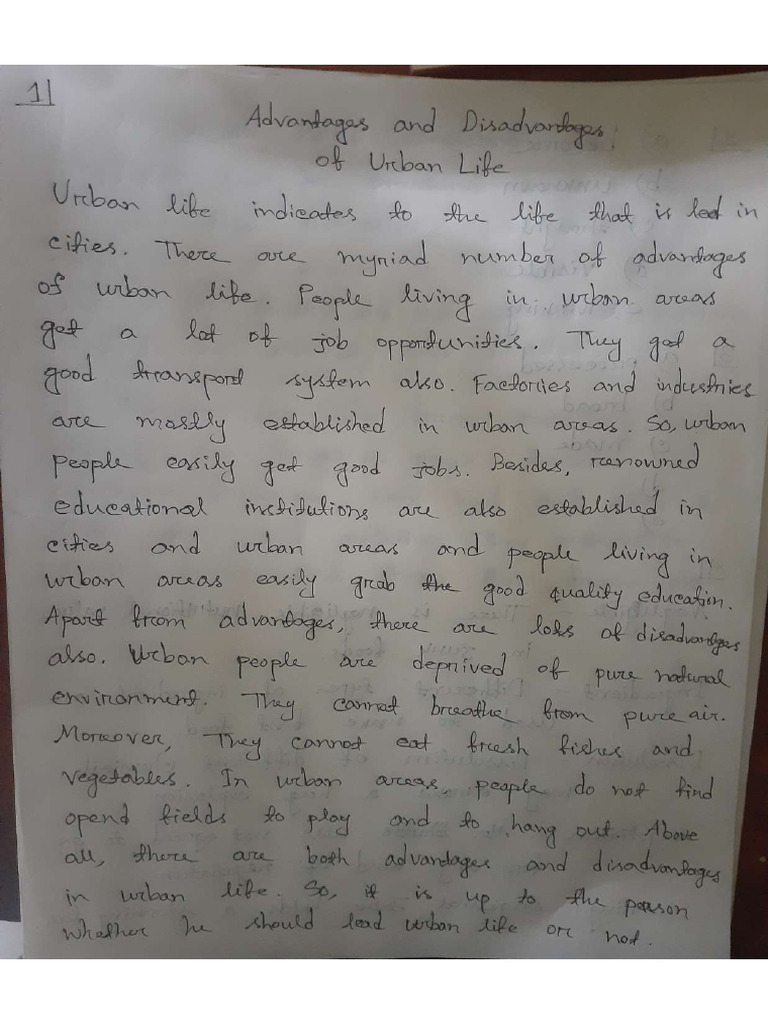 1|
Advantages and Disadvantages
of Urban Life
Urban life indicates to the life that is led in
cities. There are myriad number of advantages
of urban life. People living in urban areas
get a lot of job opportunities. They get a
good transport system also. Factories and industries
are mostly established in urban areas. So, urban
people easily get good jobs. Besides, renowned
educational institutions are also established in
cities and urban areas and people living in
urban areas easily grab the good quality education.
Apart from advantages, there are lots of disadvantages
also. Urban people are deprived of pure natural
environment. They cannot breathe from pure air.
Moreover, They cannot eat fresh fishes and
vegetables. In urban areas, people do not find
opend fields to play and to hang out. Above
all, there are both advantages and disadvantages
in urban life. So, it is up to the person
whether he should lead urban life or not.